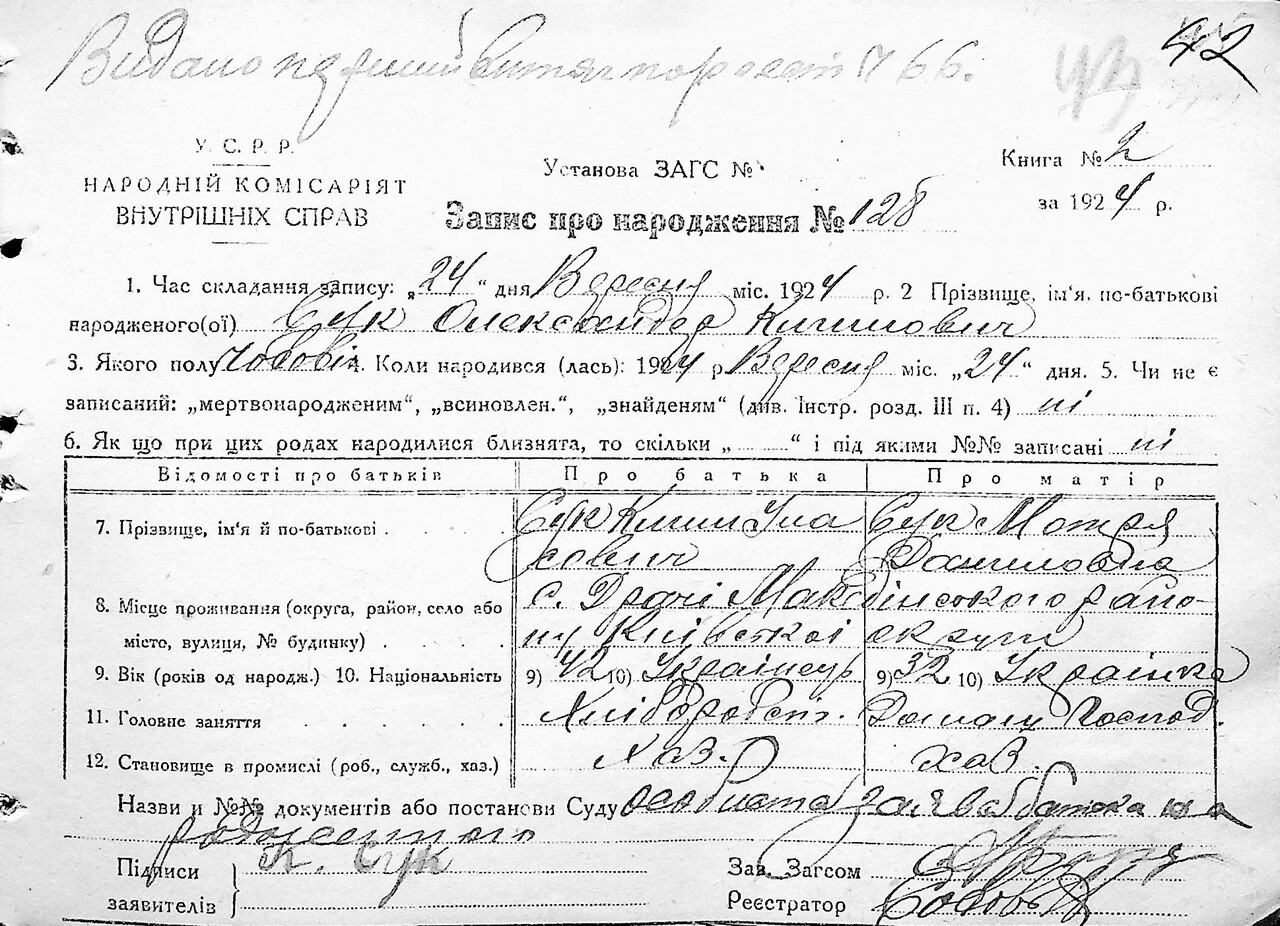 Видано 766.
42
У. С. Р. Р.
НАРОДНІЙ КОМІСАРІЯТ
ВНУТРІШНІХ СПРАВ
Установа ЗАГС №
Книга № 2
за 1924 р.
Запис про народження № 128
1. Час складання запису: „24“ дня Вересня міс. 1924 р. 2 Прізвище, ім'я, по-батькові
народженого(ої) Сук Олександер Кигилович
3. Якого полу чоловіч 4. Коли народився (лась): 1924 р Вересня міс. „24“ дня. 5. Чи не є
записаний: „мертвонародженим“, „всиновлен.“, „знайденям“ (див. Інстр. розд. III п. 4) ні
6. Як що при цих родах народилися близнята, то скільки „ “ і під якими №№ записані ні
Відомості про батьків Про батька Про матір
7. Прізвище, ім'я й по-батькові Сук Сук Мотря
сович Даниловна
8. Місце проживання (округа, район, село або с. Драчі Макодінського райо-
місто, вулиця, № будинку) ну Київської округи
9. Вік (років од народж.) 10. Національність 9) 42 10) Українець 9) 32 10) Українка
11. Головне заняття Хліборобст. Домашн Господ.
12. Становище в промислі (роб., служб., хаз.) хаз. хаз.
Назви и №№ документів або постанови Суду особиста заява батька
родженного
Підписи К. Сук
заявителів
Зав. Загсом
Реєстратор